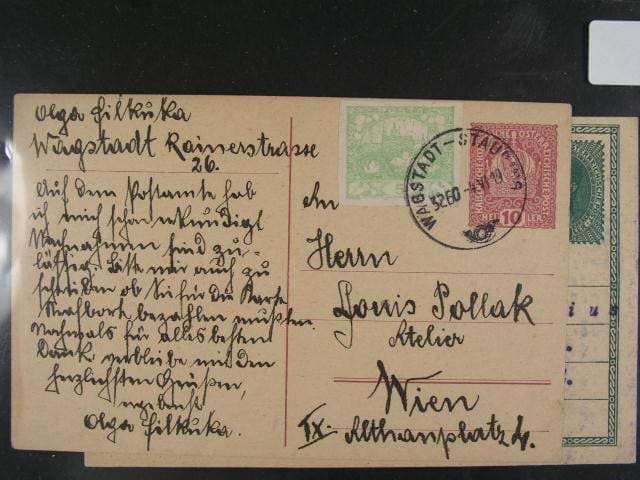 Olga Filkuka
Wagstadt Rainerstrasse
26.
Auf dem Postamte hab
ich mich schon erkundigt
Nachnahmen sind zu-
lässig. Bitte mir auch zu
schreiben ob Sie für die Karte
Strafporto bezahlen mußten.
Nochmals für alles besten
Dank verbleibe mit den
herzlichsten Grüßen,
Olga Filkuka.
An
Herrn
Louis Pollak
Atelier
Wien
IX. Althanplatz 4.
WAGSTADT-STAU
3260 -4.VI 19
10
HELLER